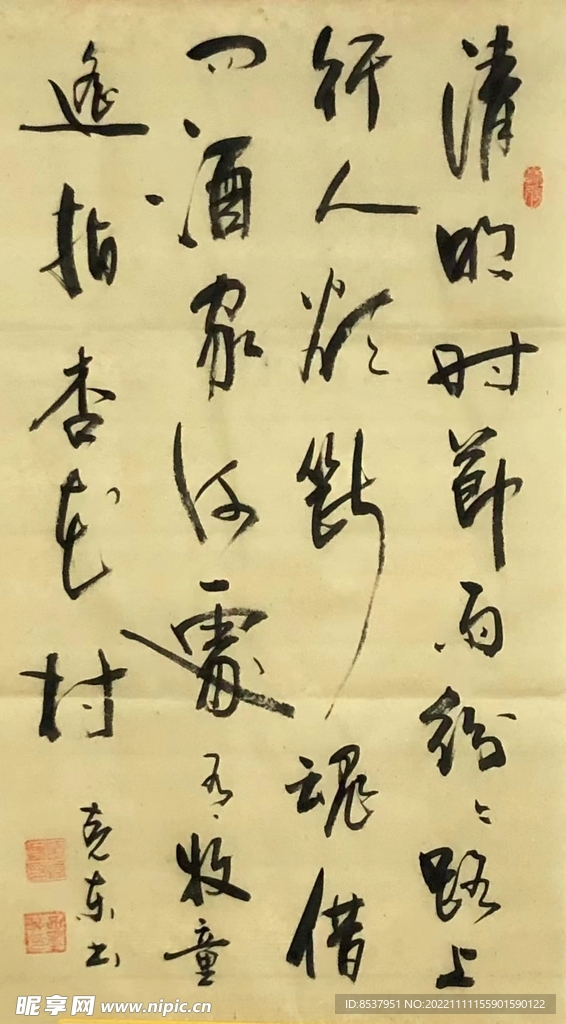 清明时節雨纷〻路上
行人欲断魂借
问酒家何處有牧童
遥指杏花村
克东书
昵享网 www.nipic.cn
ID:8537951 NO:20221111155901590122